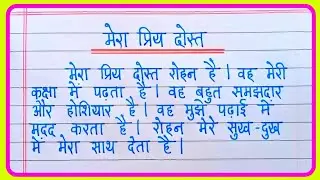 मेरा प्रिय दोस्त
मेरा प्रिय दोस्त रोहन है । वह मेरी
कक्षा में पढ़ता है । वह बहुत समझदार
और होशियार है । वह मुझे पढ़ाई में
मदद करता है । रोहन मेरे सुख-दुख
में मेरा साथ देता है ।